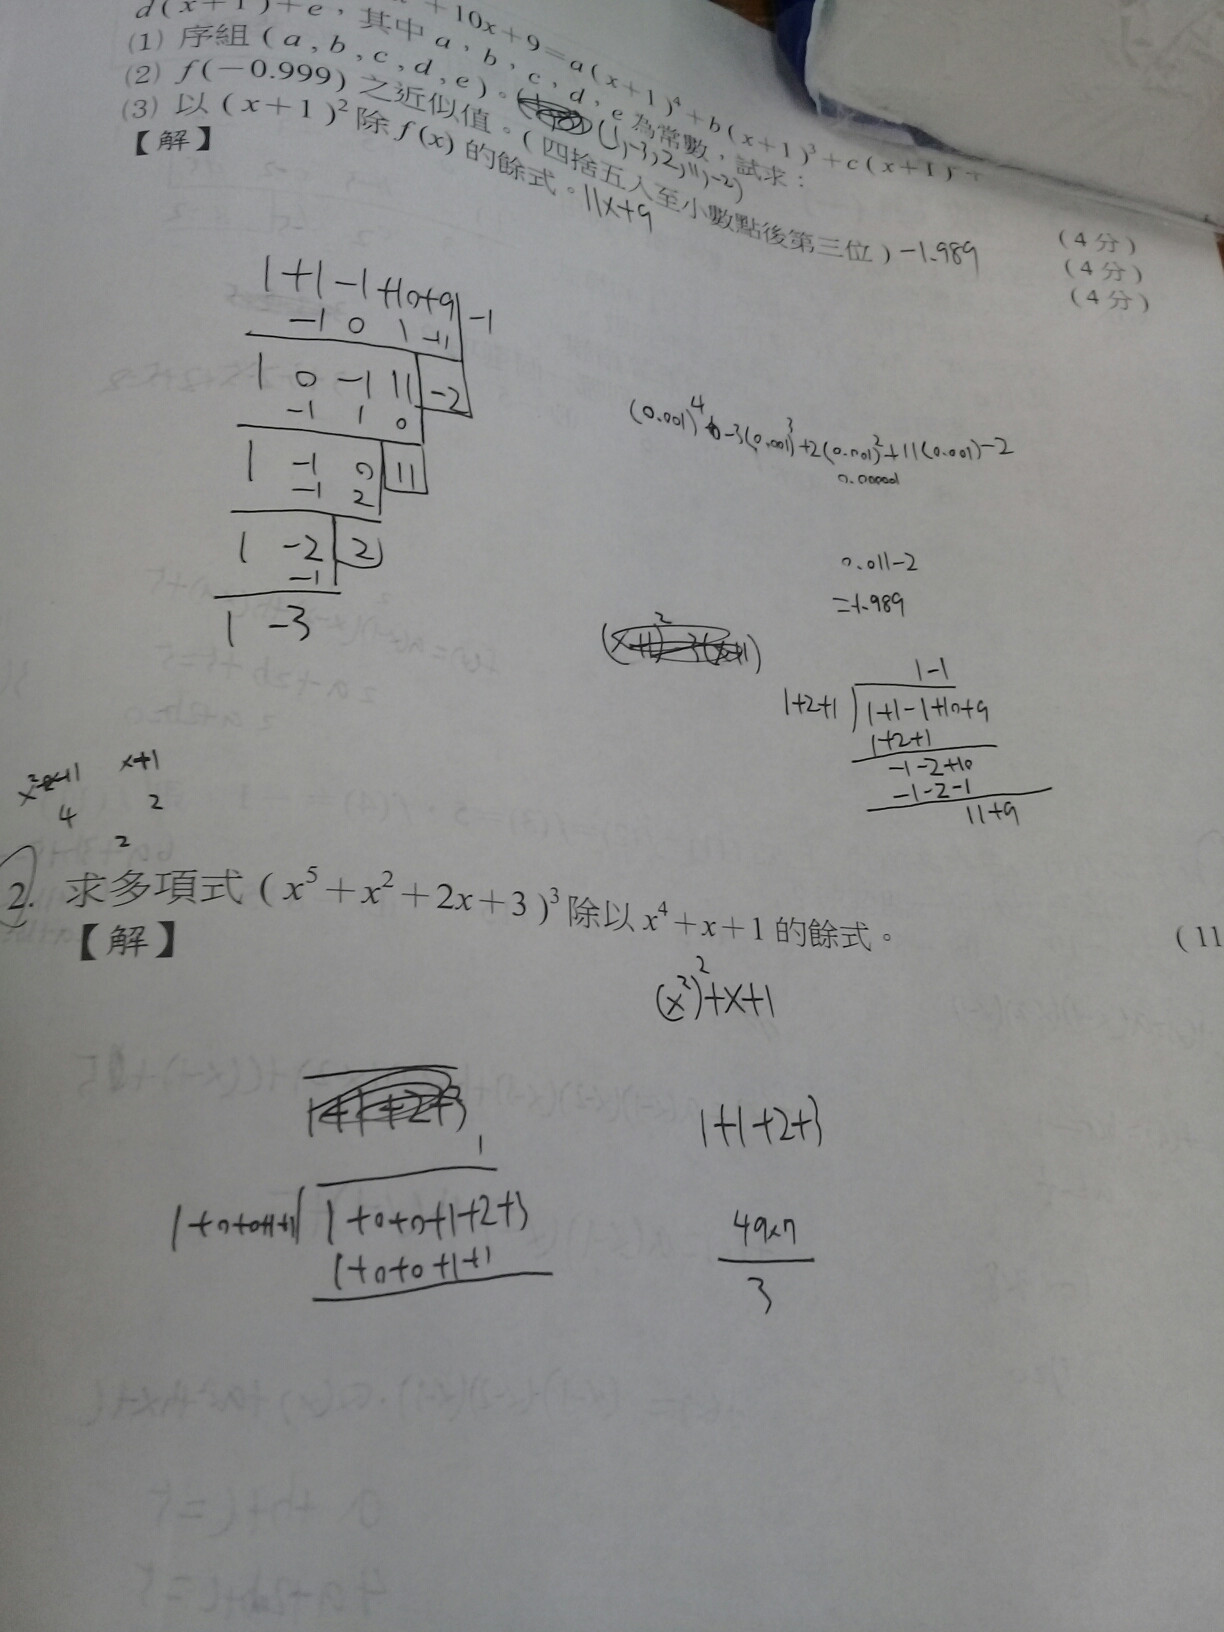 +10x+9=a(x+1)⁴+b(x+1)³+c(x+1)²+
d(x+1)+e，其中a，b，c，d，e為常數，試求：
(1) 序組(a，b，c，d，e)。(1,-3,2,11,-2) (4分)
(2) f(-0.999)之近似值。(四捨五入至小數點後第三位) -1.989 (4分)
(3) 以(x+1)²除f(x)的餘式。11x+9 (4分)
【解】
1+1-1+10+9 -1
-1 0 1 -11
1 0 -1 11 -2
-1 1 0
1 -1 0 11
-1 2
1 -2 2
-1
1 -3
(0.001)⁴-3(0.001)³+2(0.001)²+11(0.001)-2
0.000001
0.011-2
=-1.989
1-1
1+2+1 1+1-1+10+9
1+2+1
-1-2+10
-1-2-1
11+9
x+1
4 2
2
2. 求多項式(x⁵+x²+2x+3)³除以x⁴+x+1的餘式。 (11
【解】
(x²)²+x+1
1+1+2+3
1
1+0+0+1+1 1+0+0+1+2+3
1+0+0+1+1
49×7
3